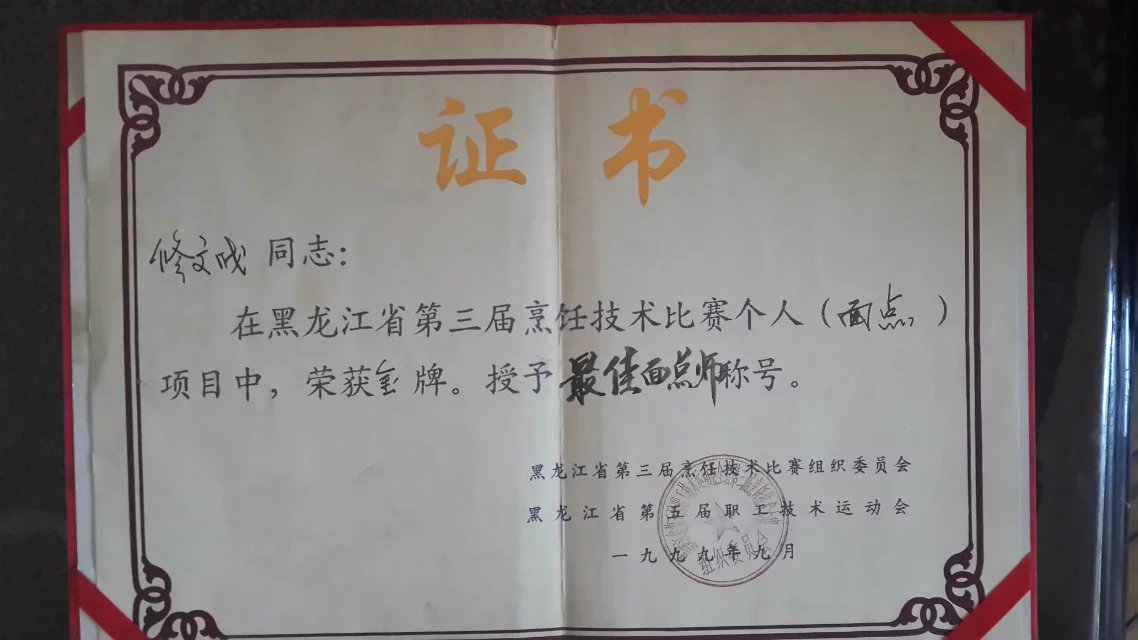 证书
修文成 同志：
在黑龙江省第三届烹饪技术比赛个人（面点）
项目中，荣获金牌。授予最佳面点师称号。
黑龙江省第三届烹饪技术比赛组织委员会
黑龙江省第五届职工技术运动会
一九九九年九月
组织委员会